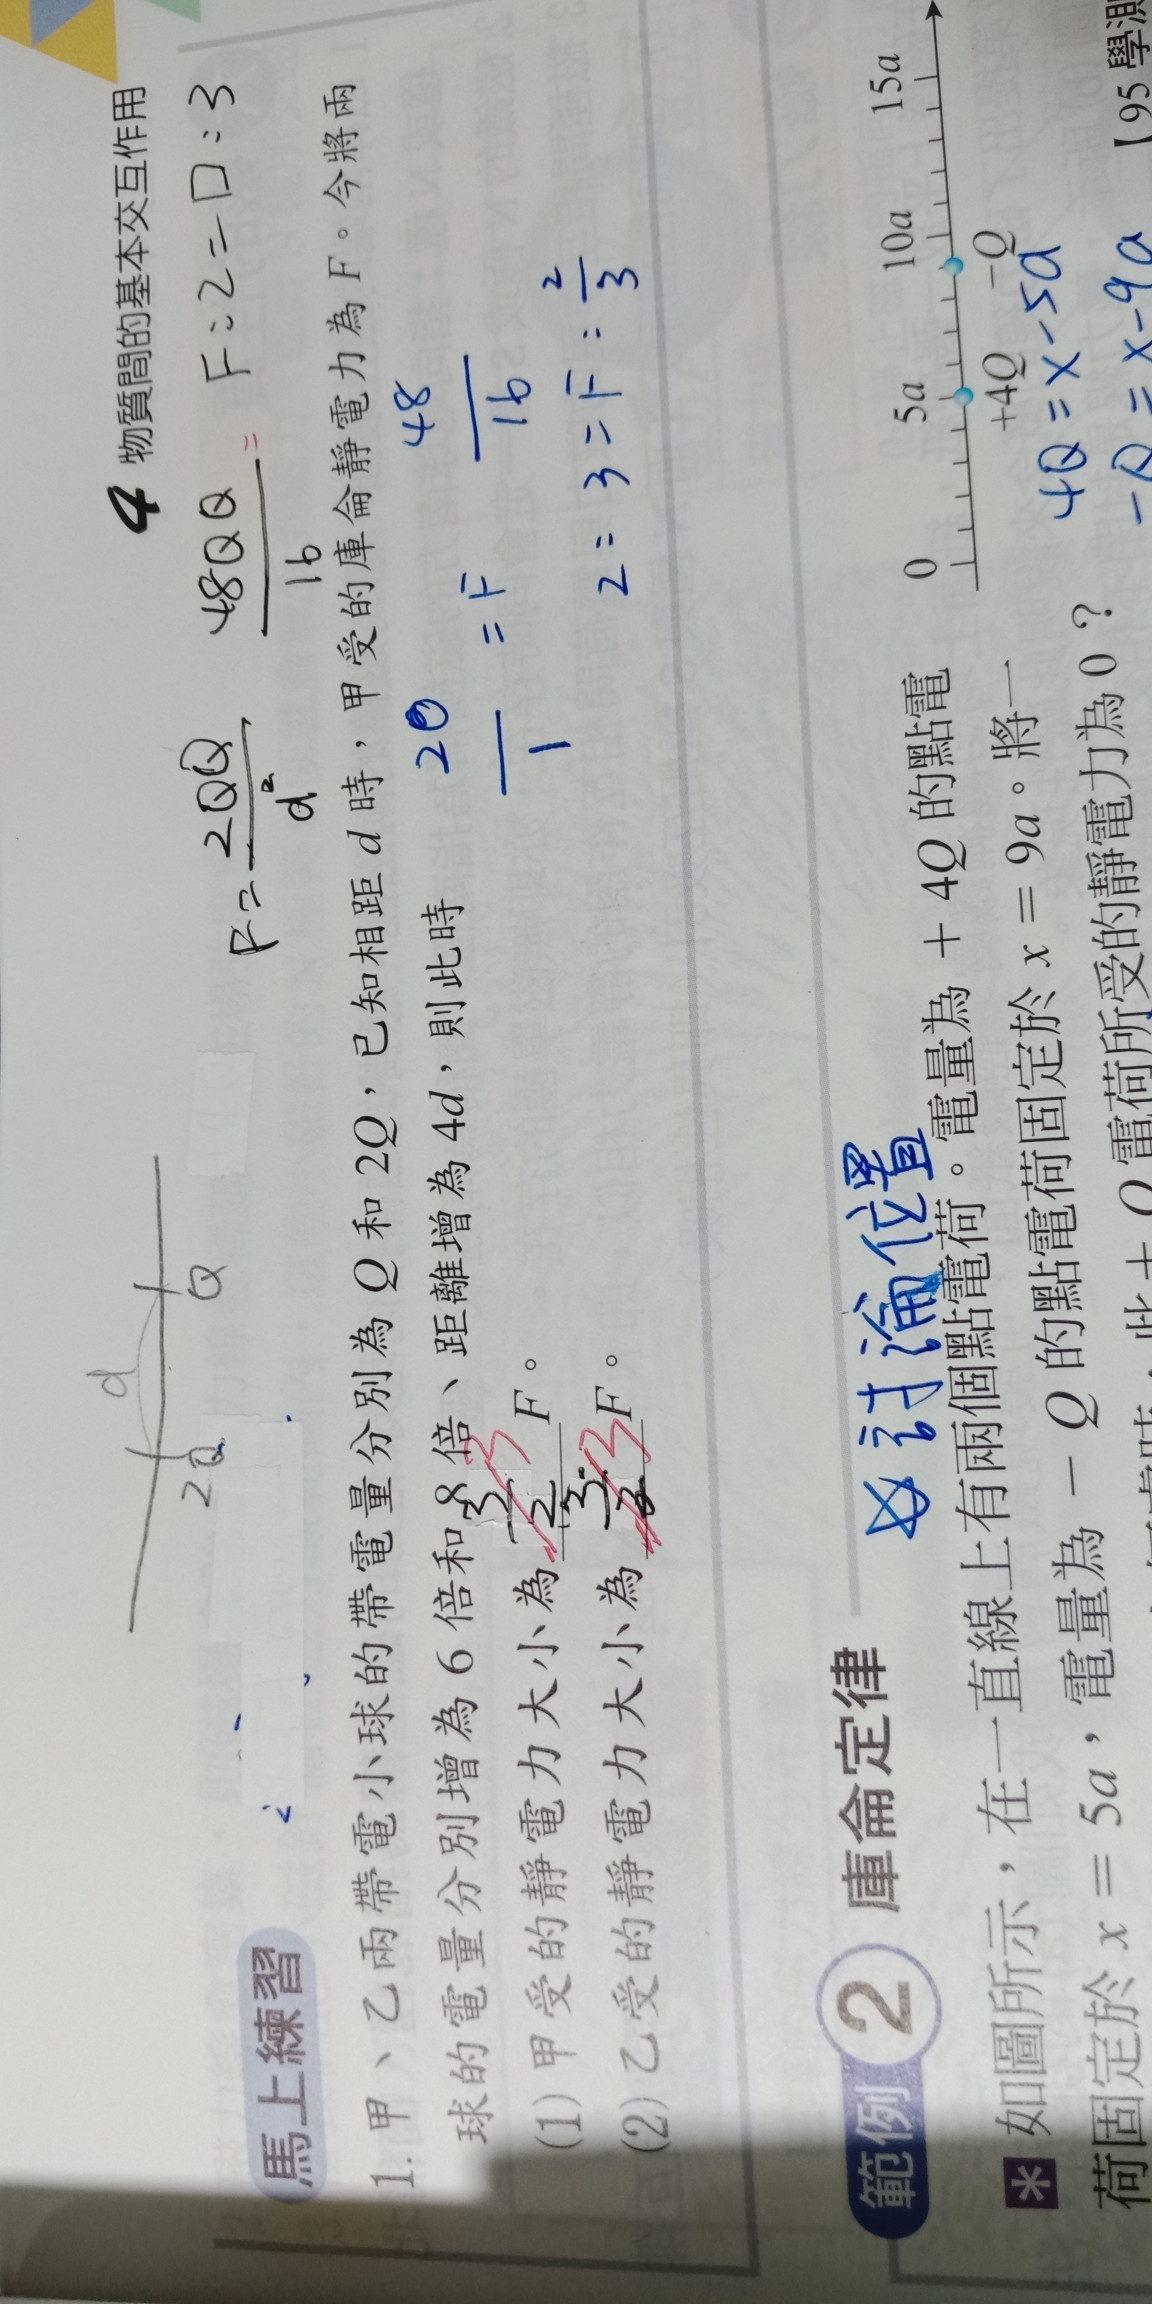 4 物質間的基本交互作用
d
2Q Q
F = 2QQ / d²
48QQ / 16 = F : 2 = □ : 3
馬上練習
1. 甲、乙兩帶電小球的帶電量分別為 Q 和 2Q，已知相距 d 時，甲受的庫侖靜電力為 F。今將兩
球的電量分別增為 6 倍和 8 倍、距離增為 4d，則此時
2Q / 1 = F
48 / 16
(1) 甲受的靜電力大小為 3/2 F。
2 = 3 = F : 2/3
(2) 乙受的靜電力大小為 3/2 F。
範例 2 庫侖定律
討論位置
* 如圖所示，在一直線上有兩個點電荷。電量為 + 4Q 的點電
荷固定於 x = 5a，電量為 − Q 的點電荷固定於 x = 9a。將一
電荷所受的靜電力為 0？
0 5a 10a 15a
+4Q −Q
4Q = x-5a
-Q = x-9a
【95 學測